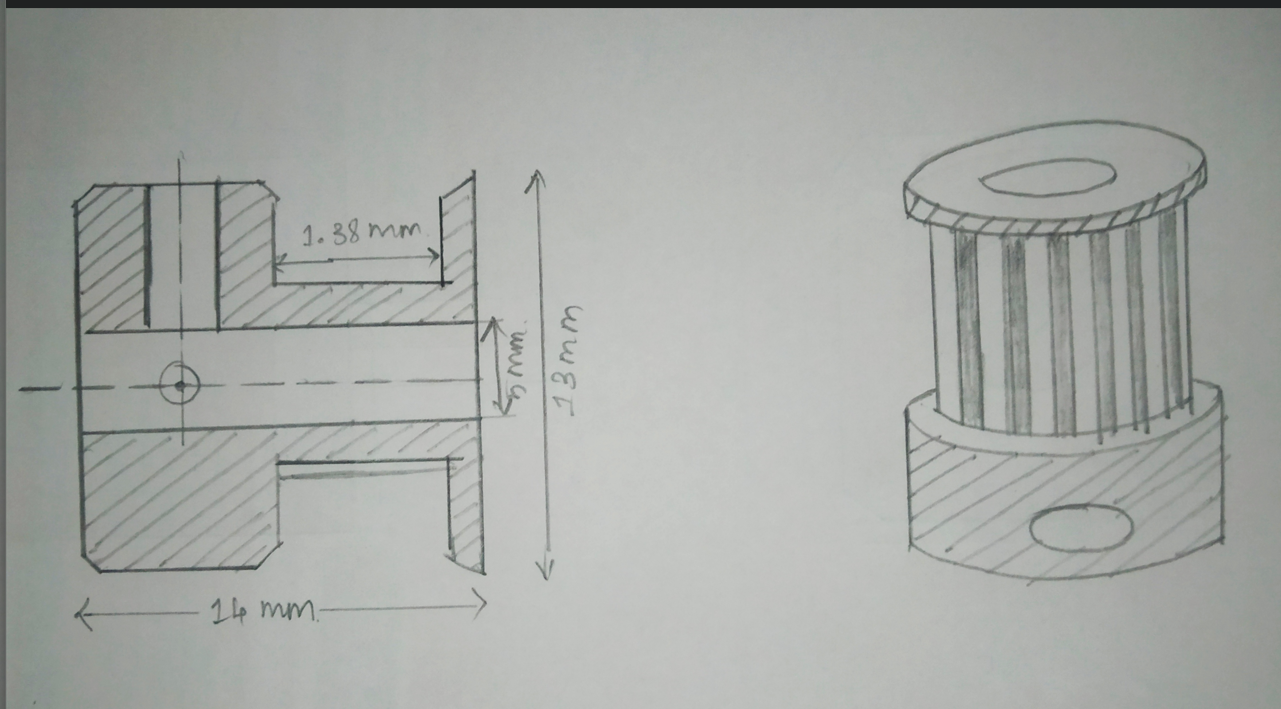 1.38 mm
5 mm
13 mm
14 mm.